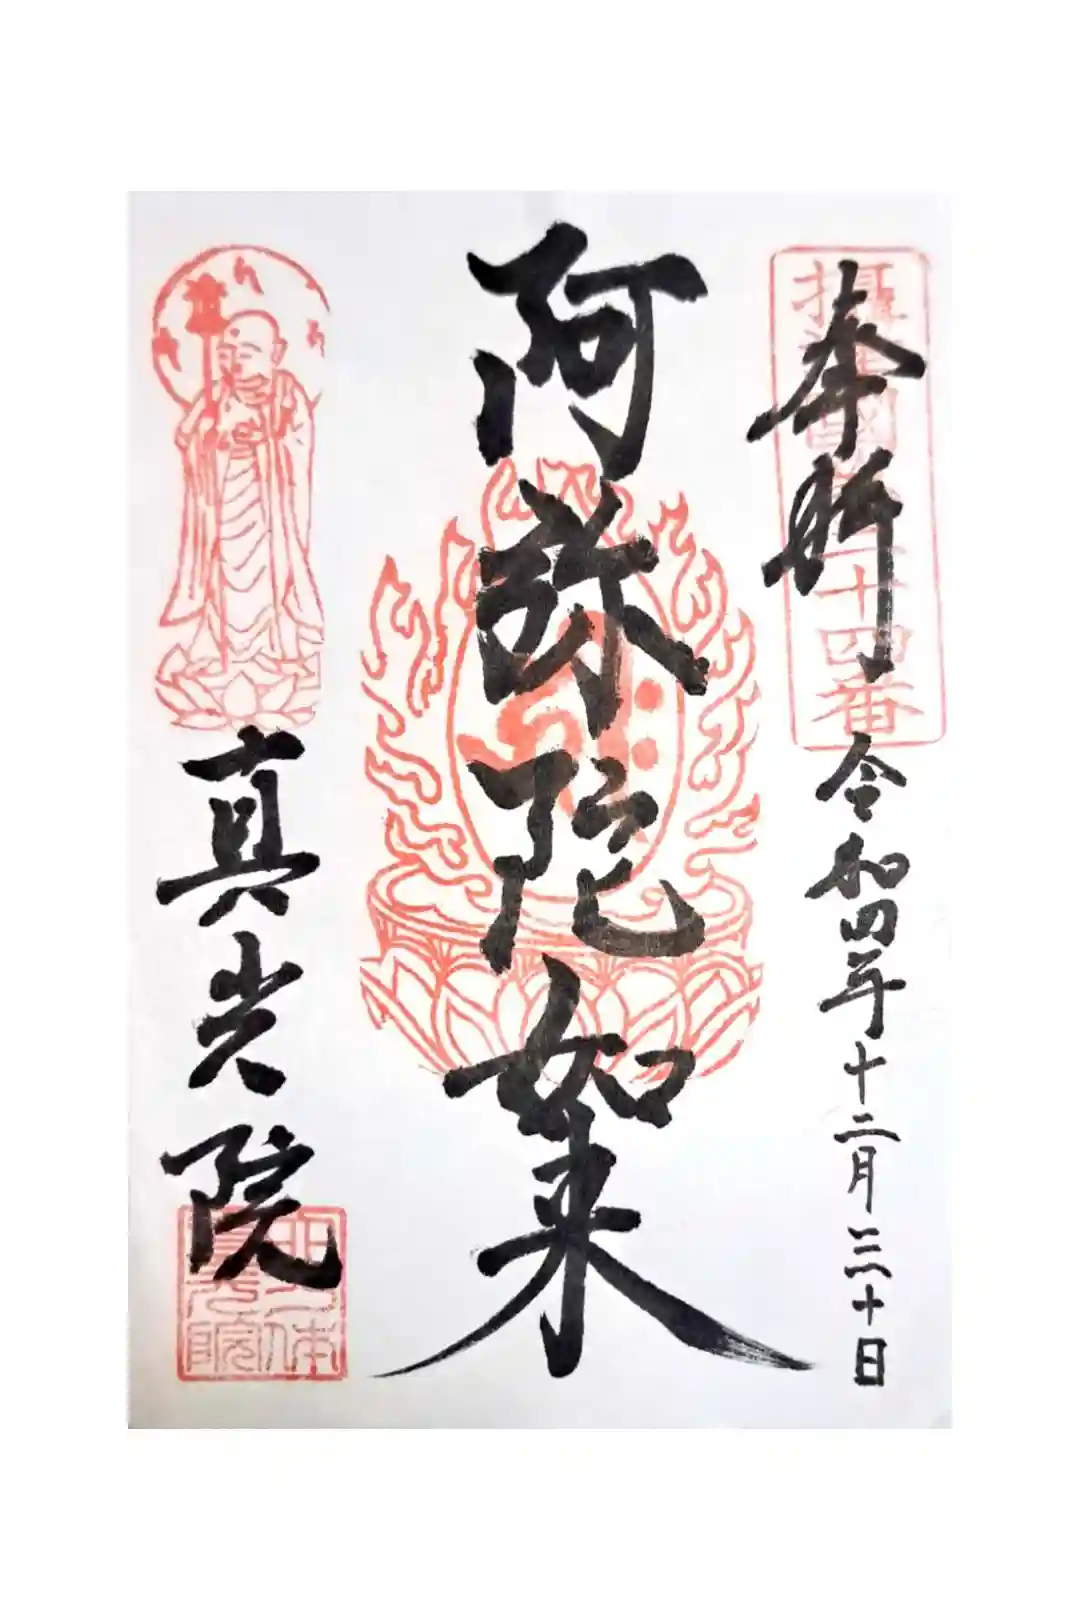 摂津国
十四番
奉拝
令和四年十二月三十日
阿弥陀如来
真光院
真光院